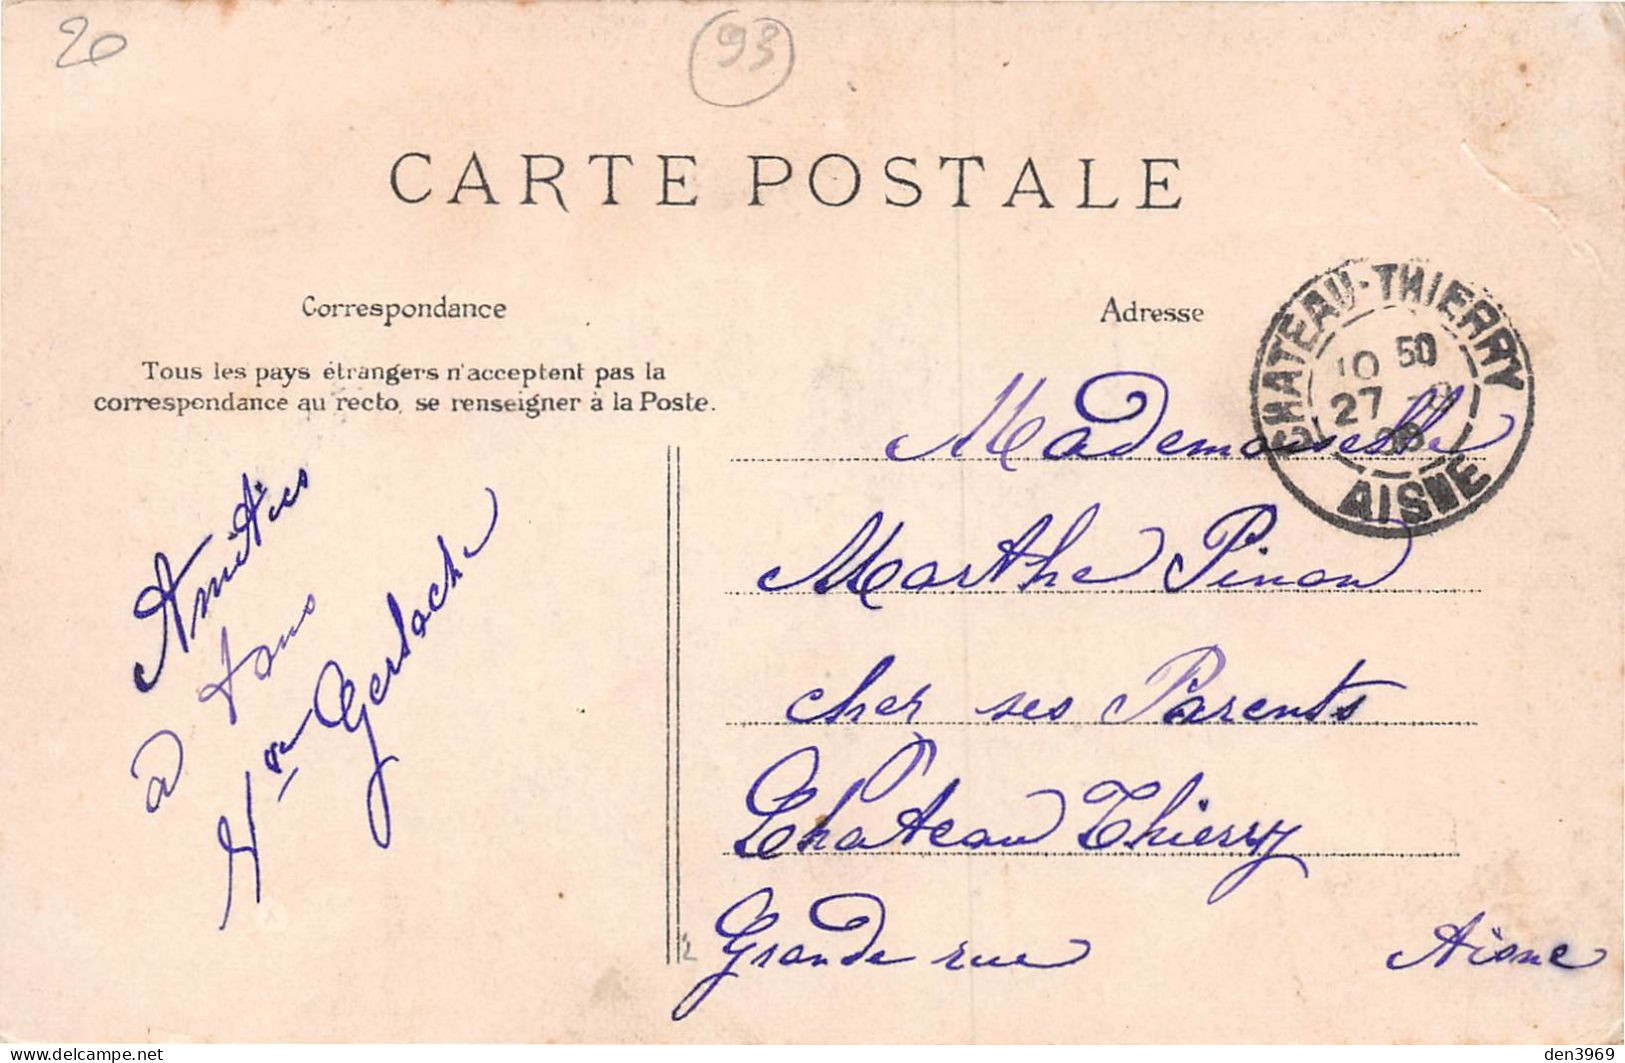 20
93
CARTE POSTALE
Correspondance
Tous les pays étrangers n'acceptent pas la
correspondance au recto, se renseigner à la Poste.
Amitiés
à tous
Gerlache
Adresse
CHATEAU-THIERRY
10 50
27
08
AISNE
Mademoiselle
Marthe Pinon
cher ses Parents
Château Thierry
Grande rue Aisne
delcampe.net
den3969